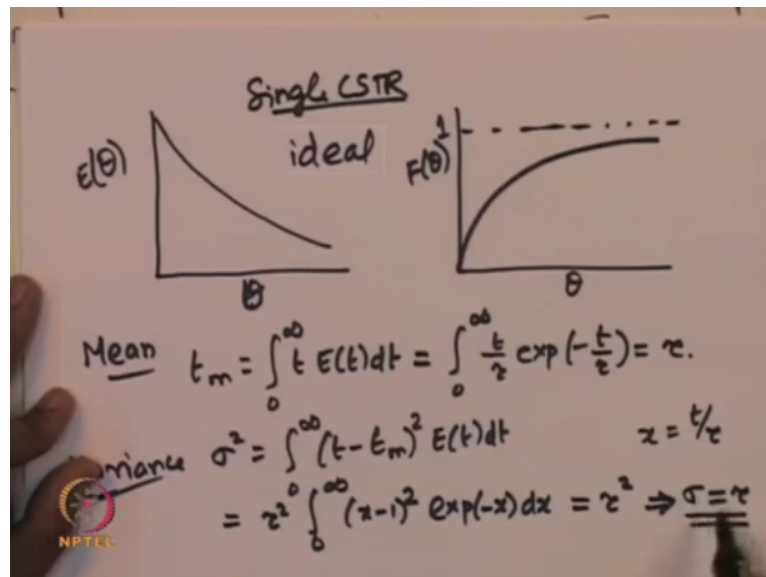 Single CSTR
ideal
E(θ)
θ
1
F(θ)
θ
Mean t_m = ∫₀^∞ t E(t)dt = ∫₀^∞ t/τ exp(-t/τ) = τ.
σ² = ∫₀^∞ (t-t_m)² E(t)dt x = t/τ
= τ² ∫₀^∞ (x-1)² exp(-x)dx = τ² ⇒ σ = τ
NPTEL